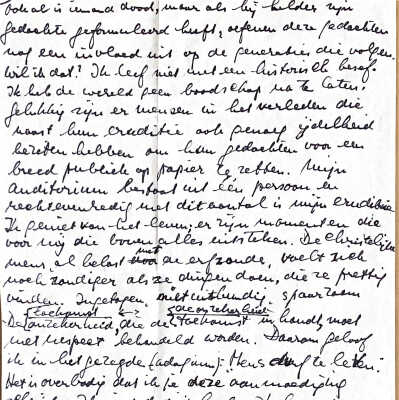 Ook al is iemand dood, maar als hij helder zijn
gedachte geformuleerd heeft, oefenen deze gedachten
nog een invloed uit op de generaties die volgen.
Wil ik dat? Ik leef niet met een historisch besef.
Ik heb de wereld geen boodschap na te laten.
Gelukkig zijn er mensen in het verleden die
naast hun eruditie ook genoeg ijdelheid
bezeten hebben om hun gedachten voor een
breed publiek op papier te zetten. Mijn
auditorium bestaat uit één persoon en
rechtevenredig met dit aantal is mijn eruditie
Ik geniet van het leven; er zijn momenten die
voor mij die boven alles uitsteken. De Christelijke
mens, al belast met de erfzonde, voelt zich
nóch zondiger als ze dingen doen, die ze prettig
vinden. Ingetogen, niet uitbundig, spaarzaam
toekomst <-> de onzekerheid
De onzekerheid, die de toekomst inhoudt, moet
met respect behandeld worden. Daarom geloof
ik in het gezegde (adagium): Mens durf te leven!
Het is overbodig dat ik je deze aanmoediging